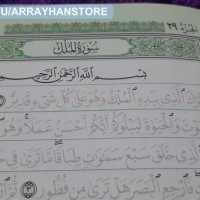 U/ARRAYHANSTORE
الجزء ٢٩
سُورَةُ المُلْكِ
بِسْمِ اللَّهِ الرَّحْمَٰنِ الرَّحِيمِ
رَكَ الَّذِي بِيَدِهِ الْمُلْكُ وَهُوَ عَلَىٰ كُلِّ شَيْءٍ قَدِيرٌ
وْتَ وَالْحَيَوٰةَ لِيَبْلُوَكُمْ أَيُّكُمْ أَحْسَنُ عَمَلًا وَهُوَ
الَّذِي خَلَقَ سَبْعَ سَمَٰوَٰتٍ طِبَاقًا مَّا تَرَىٰ فِي
فَارْجِعِ الْبَصَرَ هَلْ تَرَىٰ مِن فُطُورٍ ٣